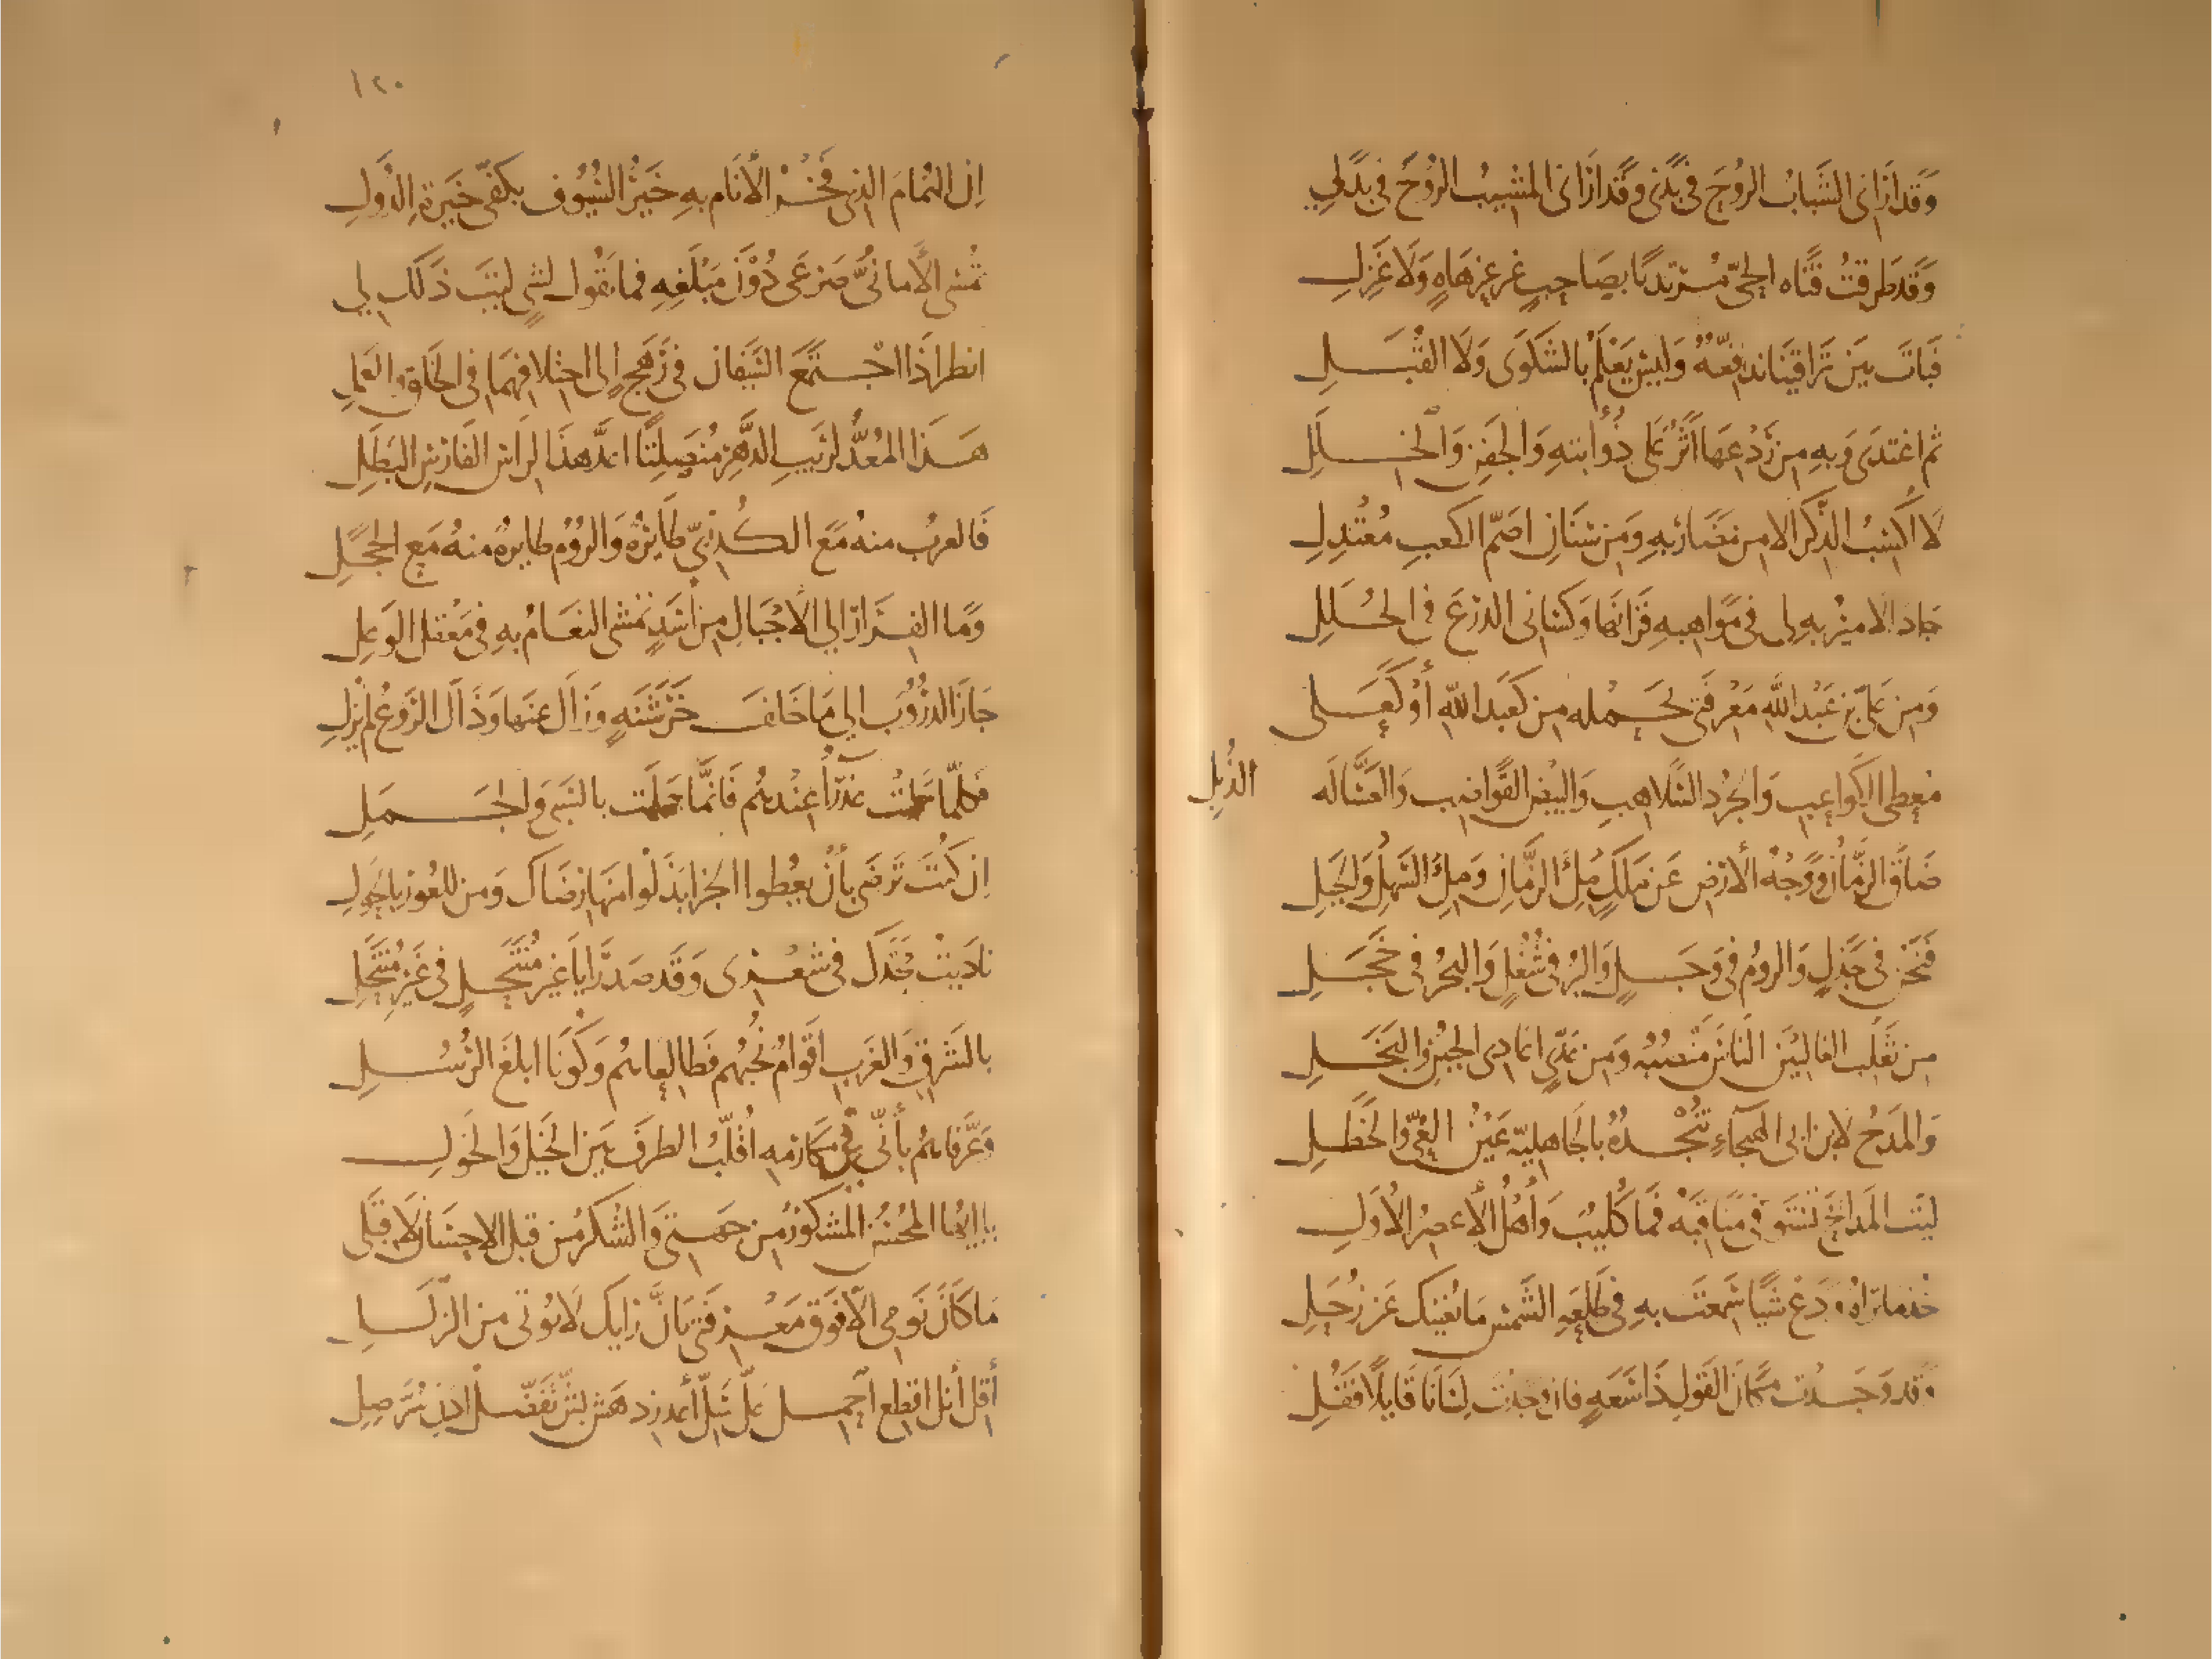 وَقَد أَرَانى الشَّبابُ الرُوحَ فى بَدَنى وَقَد أرَانى المَشيبُ الرُوحَ فى بَدَلى
وَقَد طَرقتُ فَتَاه الحىّ مُرتديًا بصَاحبٍ غير عِزهَاهٍ وَلَا غَزِل
فَبَاتَ بَينَ تَرَاقينَا ندافعُهُ وَليسَ يَعْلَمُ بالشكوَى وَلَا القُبَل
ثم اغتدَى وَبهِ مِن رَدْعهَا أثَرٌ عَلى ذُؤَابتهِ وَالجَفنِ وَالخلَلِ
لَا اكسبُ الذكرَ الا من مَضَاربهِ وَمن سنَانٍ اصَمّ الكعبِ مُعْتَدِلِ
جَادَ الاميرُ بهِ لى فى مَوَاهبهِ فَزَانهَا وَكسَانى الدرعَ فى الحُلَلِ
وَمِن عَلىّ بن عَبْدِ اللهِ مَعْرفَتى بحَمْله من كعَبد اللهِ أوْ كعَلى
معطى الكَواعبِ وَالجُردِ السَّلاهبِ وَالبيضِ القَوَاضبِ وَالعَسَّالَه الذُبلِ
ضَاقَ الزمَانُ وَوَجْهُ الأرضِ عَن مَلكٍ مِلْءَ الزمَانِ وَمِلْءَ السَّهْلِ وَالجَبَلِ
فَنَحنُ فى جَذلٍ وَالرومُ فى وَجَلٍ وَالبرُ فى شُغُلٍ وَالبحْرُ فى خَجَلِ
من تَغْلَب الغالبينَ النَّاسَ مَنْصبُهُ وَمن عَدىٍّ اعَادى الجُبنِ وَالبَخَلِ
وَالمَدحُ لابن ابى الهَيجَاءِ تُنْجدُهُ بالجَاهليّةِ عَيْنُ العِىّ وَالخَطَلِ
ليتَ المَدائحَ تَستَوفى مَنَاقبَهُ فَمَا كُليبٌ وَأهْلُ الأعصُرِ الأوَلِ
خُذ ما تَرَاهُ وَدَعْ شيًا سَمعتَ بهِ فى طَلعَهِ الشَّمسِ مَا يُغنيكَ عَن زُحَلِ
وَقد وَجَدتَ مَكَانَ القَولِ ذَا سَعَهٍ فان وَجَدتَ لِسَانًا قَايلًا فَقُلِ
١٢٠
اِن الهُمامَ الذى فَخْرُ الأنَام بهِ خَيْرُ السُّيُوف بكَفّى خَيرَةِ الدُوَلِ
تُمسى الأمانىُّ صَرعَى دُوْنَ مَبْلَغهِ فما يَقُول لشىٍ ليتَ ذَلك لى
انظر اذَا اجْتَمعَ السَّيفَان فى رَهَجٍ الى اختلافهمَا فى الخَلق وَالعَمَلِ
هَذا المُعَدُّ لرَيبِ الدَّهرِ مُنصَلتًا اعَدَّ هذَا لرَاسِ الفَارسِ البَطَلِ
فَالعربُ منهُ مَعَ الكُدرىّ طَايرَهٌ وَالرُومُ طايرهٌ منهُ مَعَ الحَجَلِ
وَمَا الفِرَارُ الى الأجْبَالِ من اسَدٍ تمشى النعَامُ بهِ فى مَعْقل الوَعِل
جَازَ الدرُوبَ الى مَا خَلفَ خَرْشَنَهٍ وَزَالَ عنهَا وَذَاكَ الرَوعُ لم يزُلِ
فكلّما حَلمتْ عَذرَاءُ عنْدهُم فَانَّمَا حَلمَت بالسَّبى وَالجَمَلِ
اِن كُنتَ تَرضَى بأنْ يعُطوا الجزا بذَلُوا منهَا رضَاكَ وَمن للعُور بالحَوَلِ
نادَيتُ مَجْدَكَ فى شعْرى وَقَد صَدَرَا يَا غيرَ مُنتَحَلٍ فى غَيرِ مُنتَحَلِ
بالشَرقِ وَالغَربِ اقْوَامٌ نُحبُّهم فَطَالعَاهُم وَكُونَا ابلغَ الرُسُلِ
وَعَرّفَاهُم بأنّى فى مَكَارمهِ أقَلّبُ الطرفَ بَينَ الخَيلِ وَالخَوَلِ
يا ايُّهَا المُحْسنُ المشكورُ من جهَتى وَالشكرُ من قبَل الاحسَانِ لَا قِبَلى
مَا كَانَ نَومى الّا فَوقَ مَعْرفَتى بَانَّ رَايكَ لَا يُوتى من الزَلَلِ
أقل أنل اقطع احمل عَلّ سَلّ أعد زد هَش بَشّ تفَضّل ادن سُرَّ صِلِ